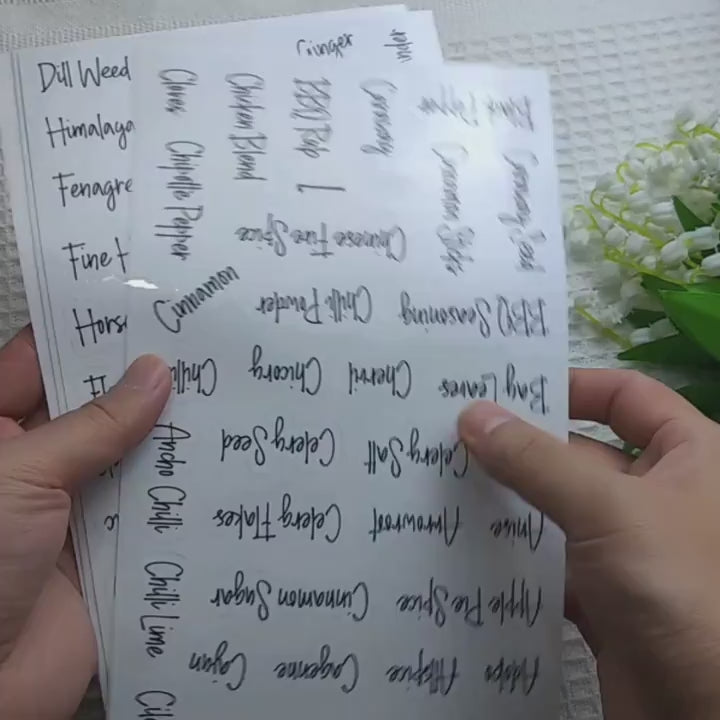 Dill Weed
Himalaya
Fenagre
Fine
Hors
Cloves
Chipotle Pepper
Chicken Blend
BBQ Rub
Caraway
Cinnamon Sticks
Caraway Seed
Chinese Five Spice
Cinnamon
Chilli Powder
BBQ Seasoning
Chilli
Chicory
Chervil
Bay Leaves
Ancho Chilli
Celery Seed
Celery Salt
Celery Flakes
Arrowroot
Anise
Chilli Lime
Cinnamon Sugar
Apple Pie Spice
Cajun
Cayenne
Allspice
Adobo